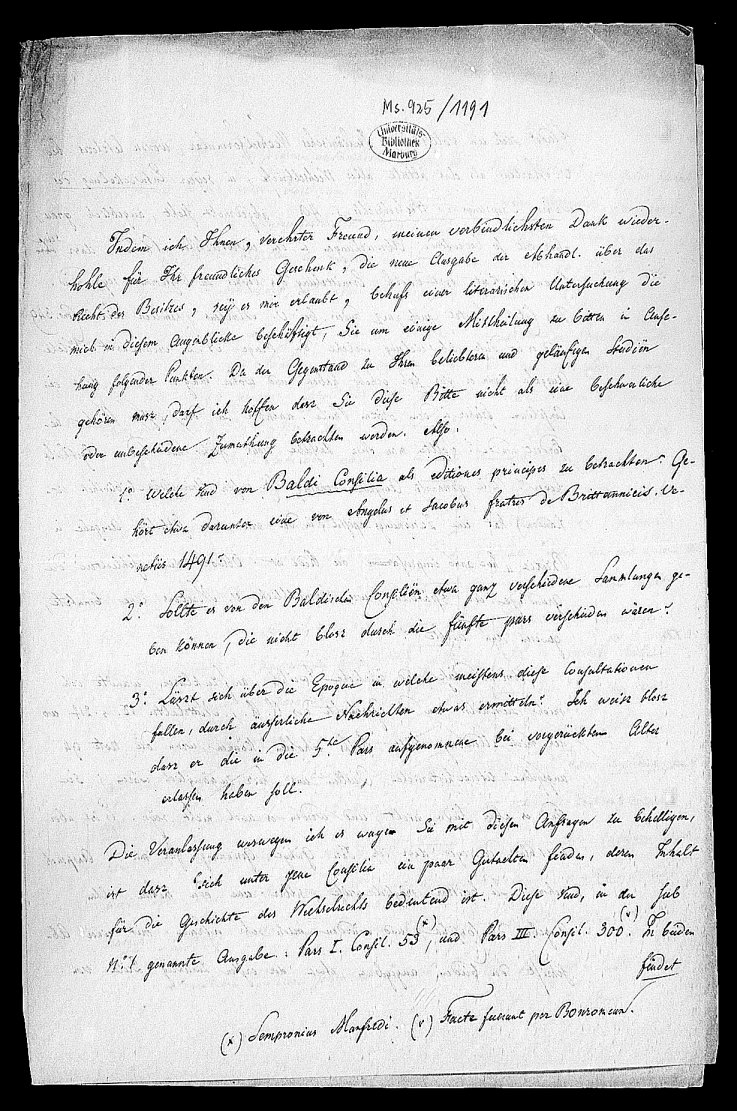 Ms. 925/1191
Universitäts-
Bibliothek
Marburg
Indem ich Ihnen, verehrter Freund, meinen verbindlichsten Dank wieder-
hohle für Ihr freundliches Geschenk, die neue Ausgabe der Abhandl. über das
Recht des Besitzes, seÿ es mir erlaubt, behufs einer literarischen Untersuchung die
mich in diesem Augenblicke beschäftigt, Sie um einige Mittheilung zu bitten in Anse-
hung folgender Punkten. Da der Gegenstand zu Ihren beliebtern und geläufigen Studiën
gehören mag, darf ich hoffen dasz Sie diese Bitte nicht als eine beschwerliche
oder unbescheidene Zumuthung betrachten werden. Also.
1.° Welche sind von Baldi Consilia als editiones principes zu betrachten? Ge-
hört etwa darunter eine von Angelus et Jacobus fratres de Brittannicis. Ve-
netiis 1491?
2.° Sollte es von den Baldischen Consiliën etwa ganz verschiedene Sammlungen ge-
ben können, die nicht blosz durch die fünfte pars verschieden wären?
3.° Läszt sich über die Epoque in welche meistens diese Consultationen
fallen, durch äusserliche Nachrichten etwas ermitteln? Ich weisz blosz
dasz er die in die 5te Pars aufgenommene bei vorgerücktem Alter
erlassen haben soll.
Die Veranlassung weswegen ich es wage Sie mit diesen Anfragen zu behelligen,
ist dasz sich unter jene Consilia ein paar Gutachten finden, deren Inhalt
für die Geschichte des Wechselrechts bedeutend ist. Diese sind, in der sub
N.° 1 genannte Ausgabe: Pars I. Consil. 53 (x), und Pars III Consil. 300. (v) In beiden
findet
(x) Sempronius Manfredi. (v) Facte fuerunt per Bonromeum.